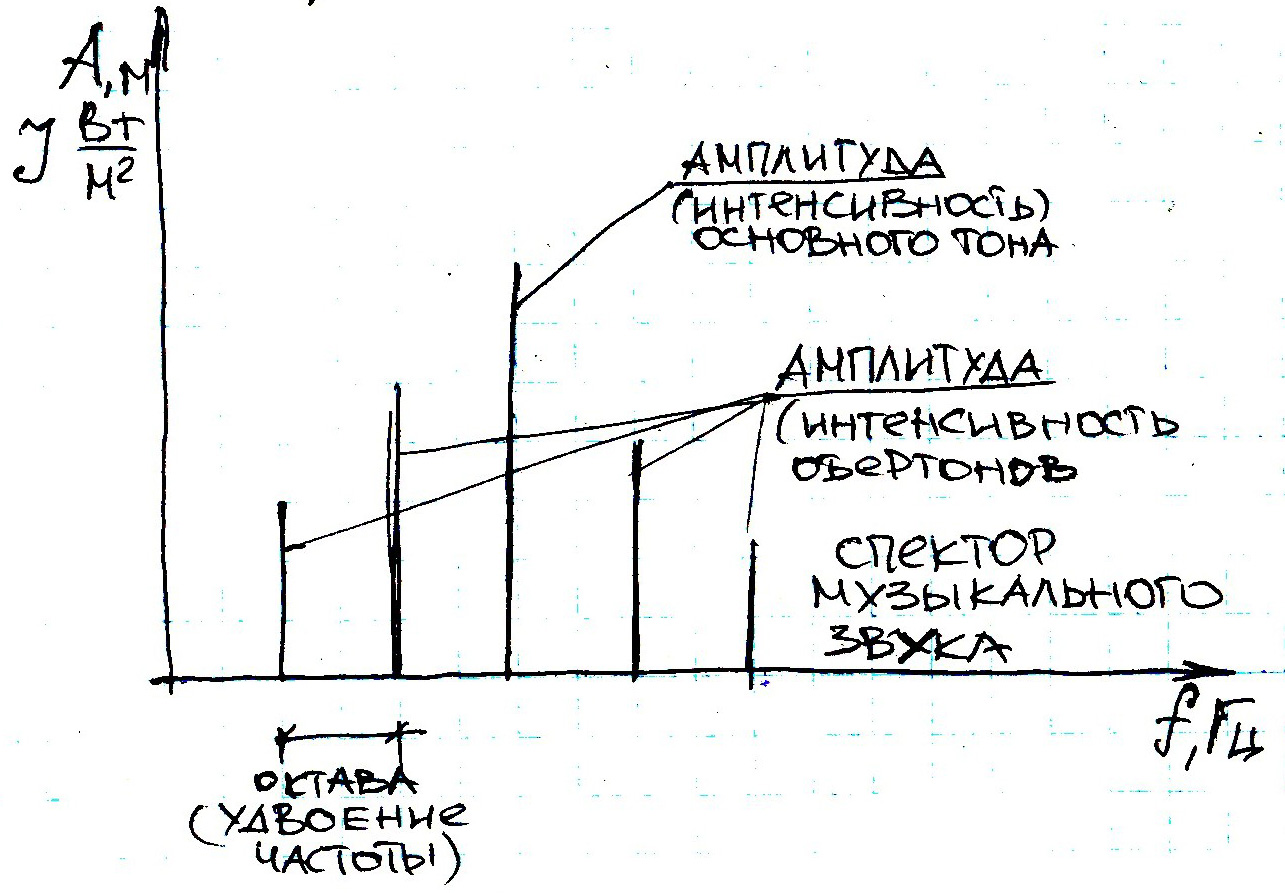 А, м
J Вт
м²
АМПЛИТУДА
(ИНТЕНСИВНОСТЬ)
ОСНОВНОГО ТОНА
АМПЛИТУДА
(ИНТЕНСИВНОСТЬ
ОБЕРТОНОВ
СПЕКТОР
МУЗЫКАЛЬНОГО
ЗВУКА
f, Гц
ОКТАВА
(УДВОЕНИЕ
ЧАСТОТЫ)